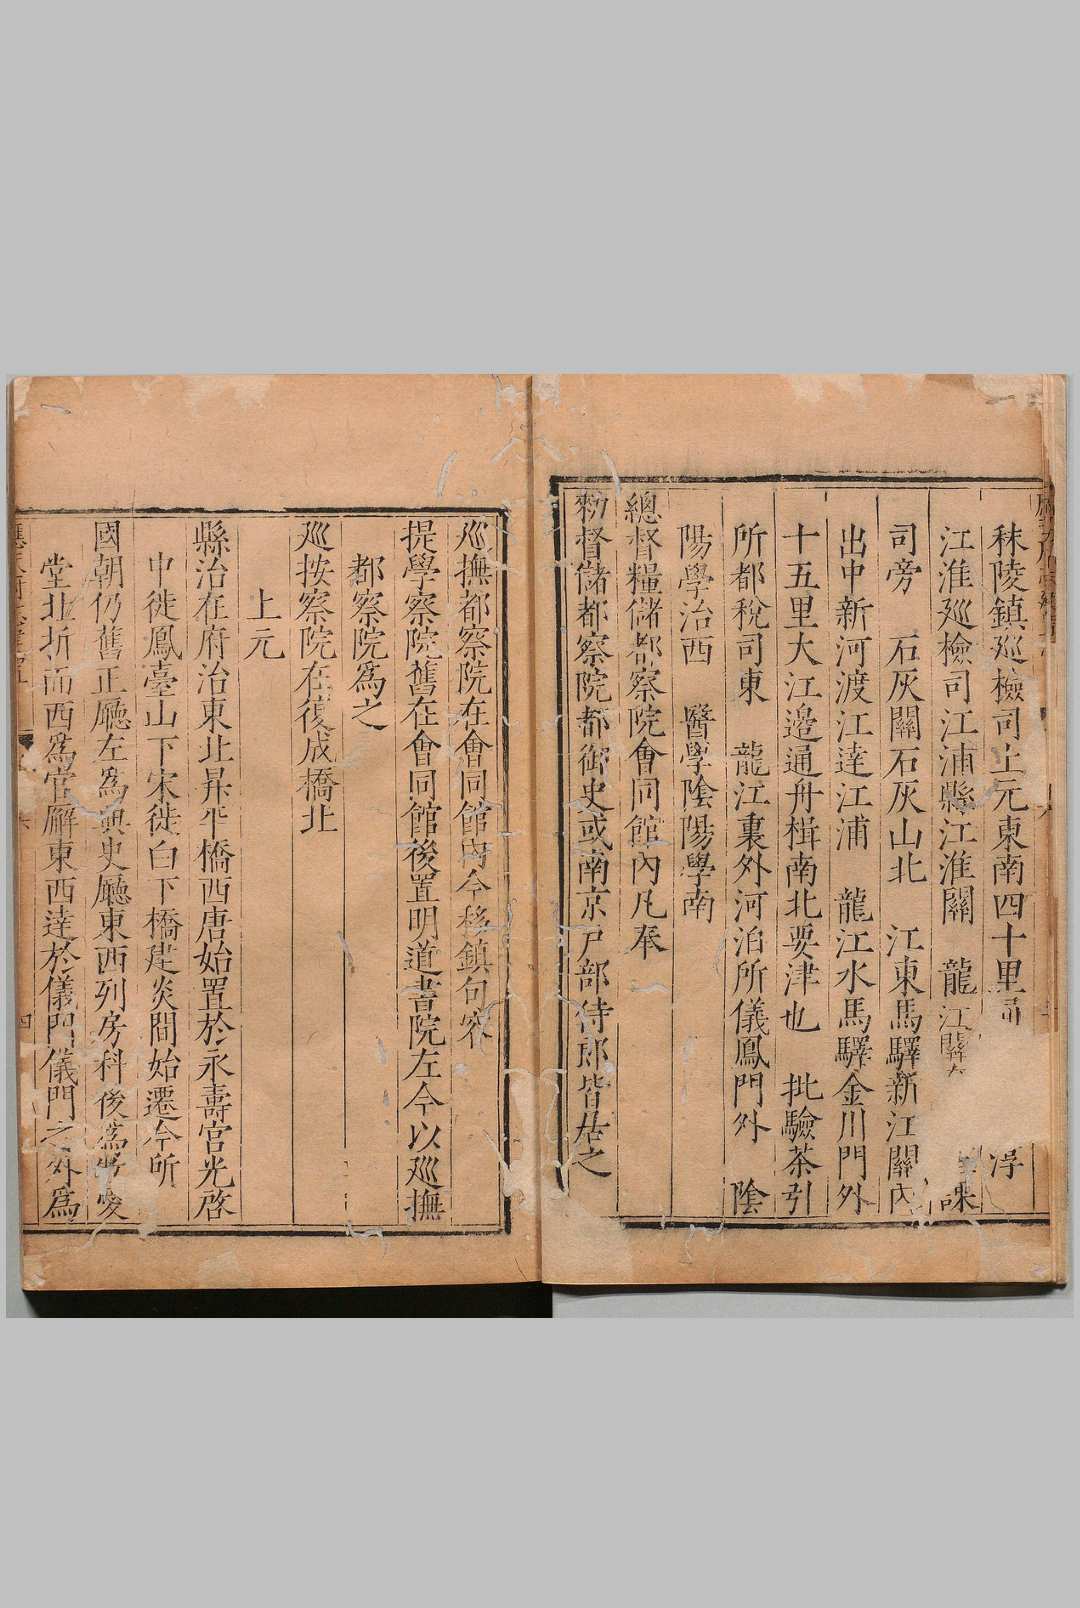 秣陵鎮廵檢司上元東南四十里
江淮廵檢司江浦縣江淮關　龍江關　課
司旁　石灰關石灰山北　江東馬驛新江關內
出中新河渡江達江浦　龍江水馬驛金川門外
十五里大江邉通舟楫南北要津也　批驗茶引
所都稅司東　龍江裏外河泊所儀鳳門外　陰
陽學治西　醫學陰陽學南
總督糧儲都察院會同館內凡奉
勑督儲都察院都御史或南京戶部侍郎皆居之
廵撫都察院在會同館內今移鎮句容
提學察院舊在會同館後置明道書院左今以廵撫
都察院爲之
廵按察院在復成橋北
上元
縣治在府治東北昇平橋西唐始置於永壽宮光啓
中徙鳳臺山下宋徙白下橋建炎間始遷今所
國朝仍舊正廳左爲典史廳東西列房科後爲
堂北折而西爲官廨東西達於儀門儀門之外爲